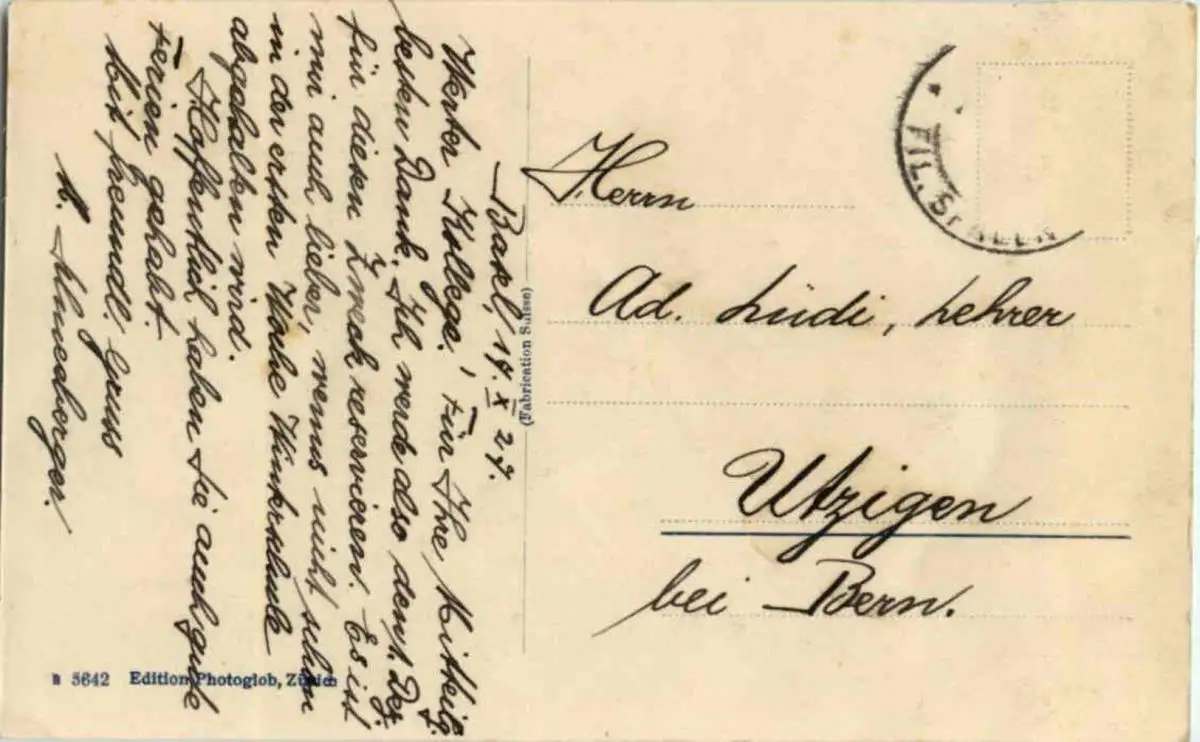 Basel, 17. X 27.
Werter Kollege! Für Ihre Mitteilg.
besten Dank. Ich werde also den 1. Dez.
für diesen Zweck reservieren. Es ist
mir auch lieber, wenns nicht schon
in der ersten Woche Winterschule
abgehalten wird.
Hoffentlich haben Sie auch gute
Ferien gehabt.
Mit freundl. Gruss
Schneeberger.
(Fabrication Suisse)
B 5642 Edition Photoglob, Zürich
FIL. ST.
Herrn
Ad. Lüdi, Lehrer
Utzigen
bei Bern.